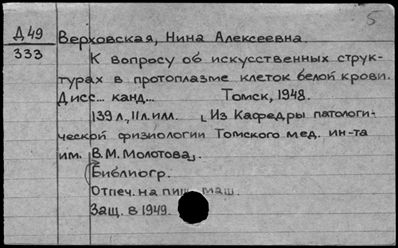 5
Д49
333
Верховская, Нина Алексеевна
К вопросу об искусственных струк-
турах в протоплазме клеток белой крови.
Дисс... канд... Томск, 1948.
139 л., 11 л. илл. [Из Кафедры патологи-
ческой физиологии Томского мед. ин-та
им. В. М. Молотова].
Библиогр.
Отпеч. на пиш. маш.
Защ. в 1949.